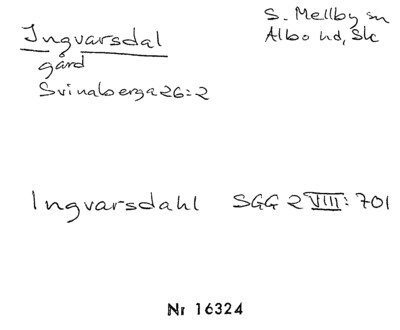 Ingvarsdal
gård
Svinaberga 26:2
S. Mellby sn
Albo hd, Sk
Ingvarsdahl SGG 2 VIII: 701
Nr 16324